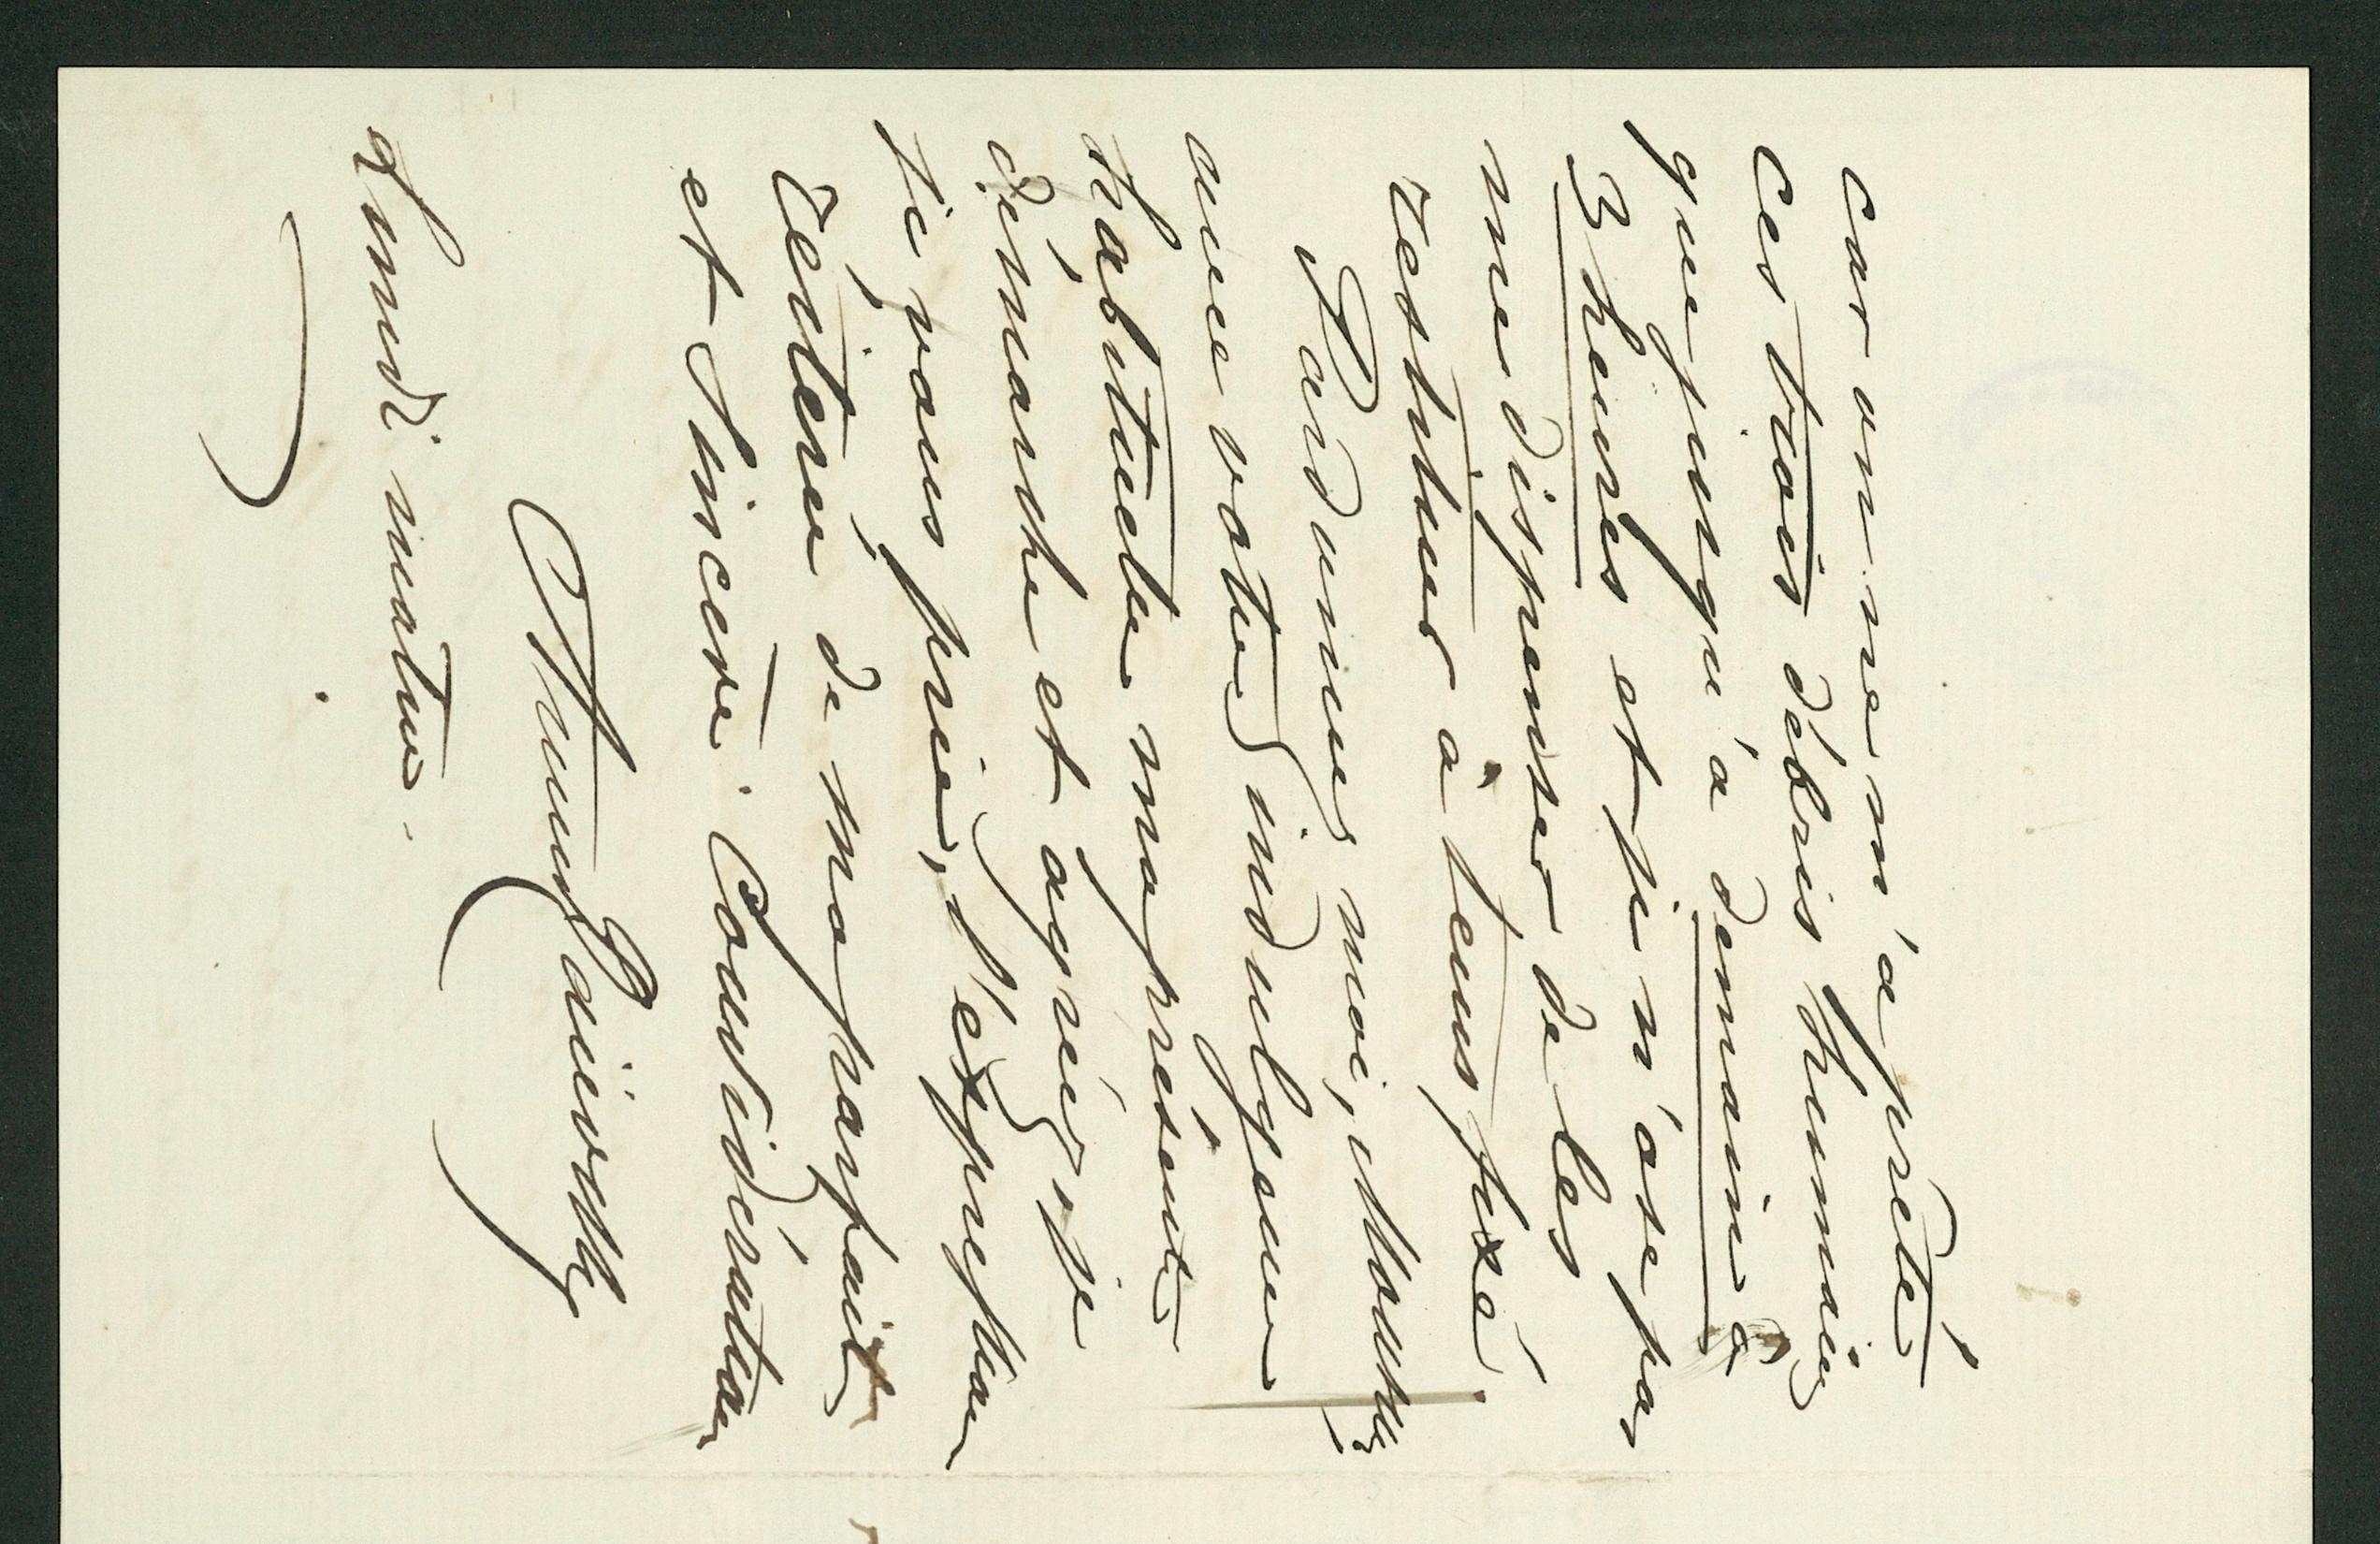 car on ne m'a prêté
ces trois débris humains
que jusqu'à demain à
3 heures et je n'ose pas
me dispenser de les
restituer à temps fixé.
Pardonnez moi, Monsieur,
avec votre indulgence
habituelle ma présente
démarche et agréez, je
je vous prie, l'expression
réitérée de ma parfaite
et sincère Considération
lundi matin.